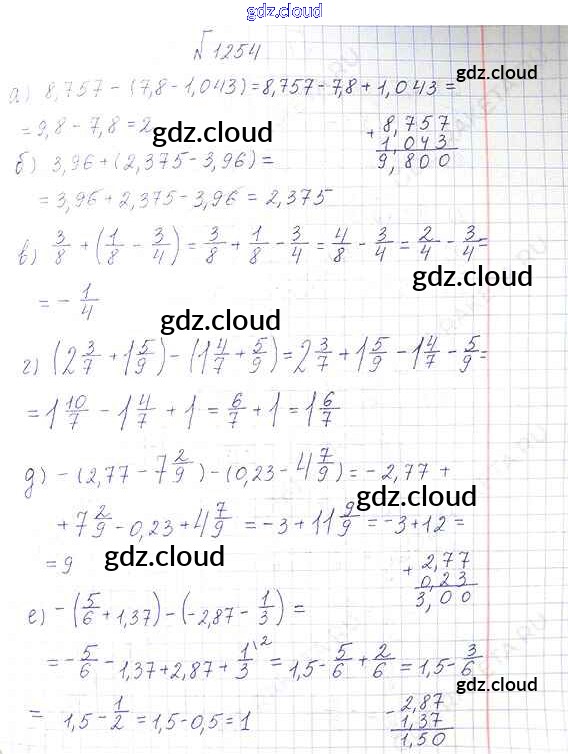 gdz.cloud
№1254
а) 8,757 - (7,8 - 1,043) = 8,757 - 7,8 + 1,043 =
= 9,8 - 7,8 = 2
gdz.cloud
+ 8,757
1,043
9,800
б) 3,96 + (2,375 - 3,96) =
gdz.cloud
= 3,96 + 2,375 - 3,96 = 2,375
в) 3/8 + (1/8 - 3/4) = 3/8 + 1/8 - 3/4 = 4/8 - 3/4 = 2/4 - 3/4 =
gdz.cloud
= - 1/4
gdz.cloud
г) (2 3/7 + 1 5/9) - (1 4/7 + 5/9) = 2 3/7 + 1 5/9 - 1 4/7 - 5/9 =
= 1 10/7 - 1 4/7 + 1 = 6/7 + 1 = 1 6/7
д) - (2,77 - 7 2/9) - (0,23 - 4 7/9) = - 2,77 +
gdz.cloud
+ 7 2/9 - 0,23 + 4 7/9 = - 3 + 11 9/9 = - 3 + 12 =
= 9
gdz.cloud
+ 2,77
0,23
3,00
е) - (5/6 + 1,37) - (- 2,87 - 1/3) =
gdz.cloud
= - 5/6 - 1,37 + 2,87 + 1/3 \2 = 1,5 - 5/6 + 2/6 = 1,5 - 3/6
gdz.cloud
= 1,5 - 1/2 = 1,5 - 0,5 = 1
- 2,87
1,37
1,50